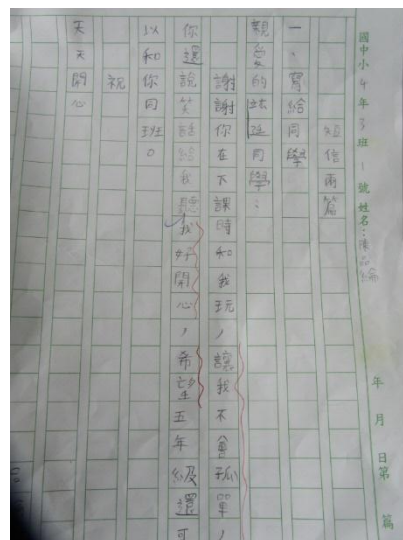 國中小4年3班1號姓名：陳品綸
年月日第篇
短信兩篇
一、寫給同學
親愛的同學：
謝謝你在下課時和我玩，讓我不會孤單，
你還說笑話給我聽我好開心，希望五年級還可
以和你同班。
祝
天天開心